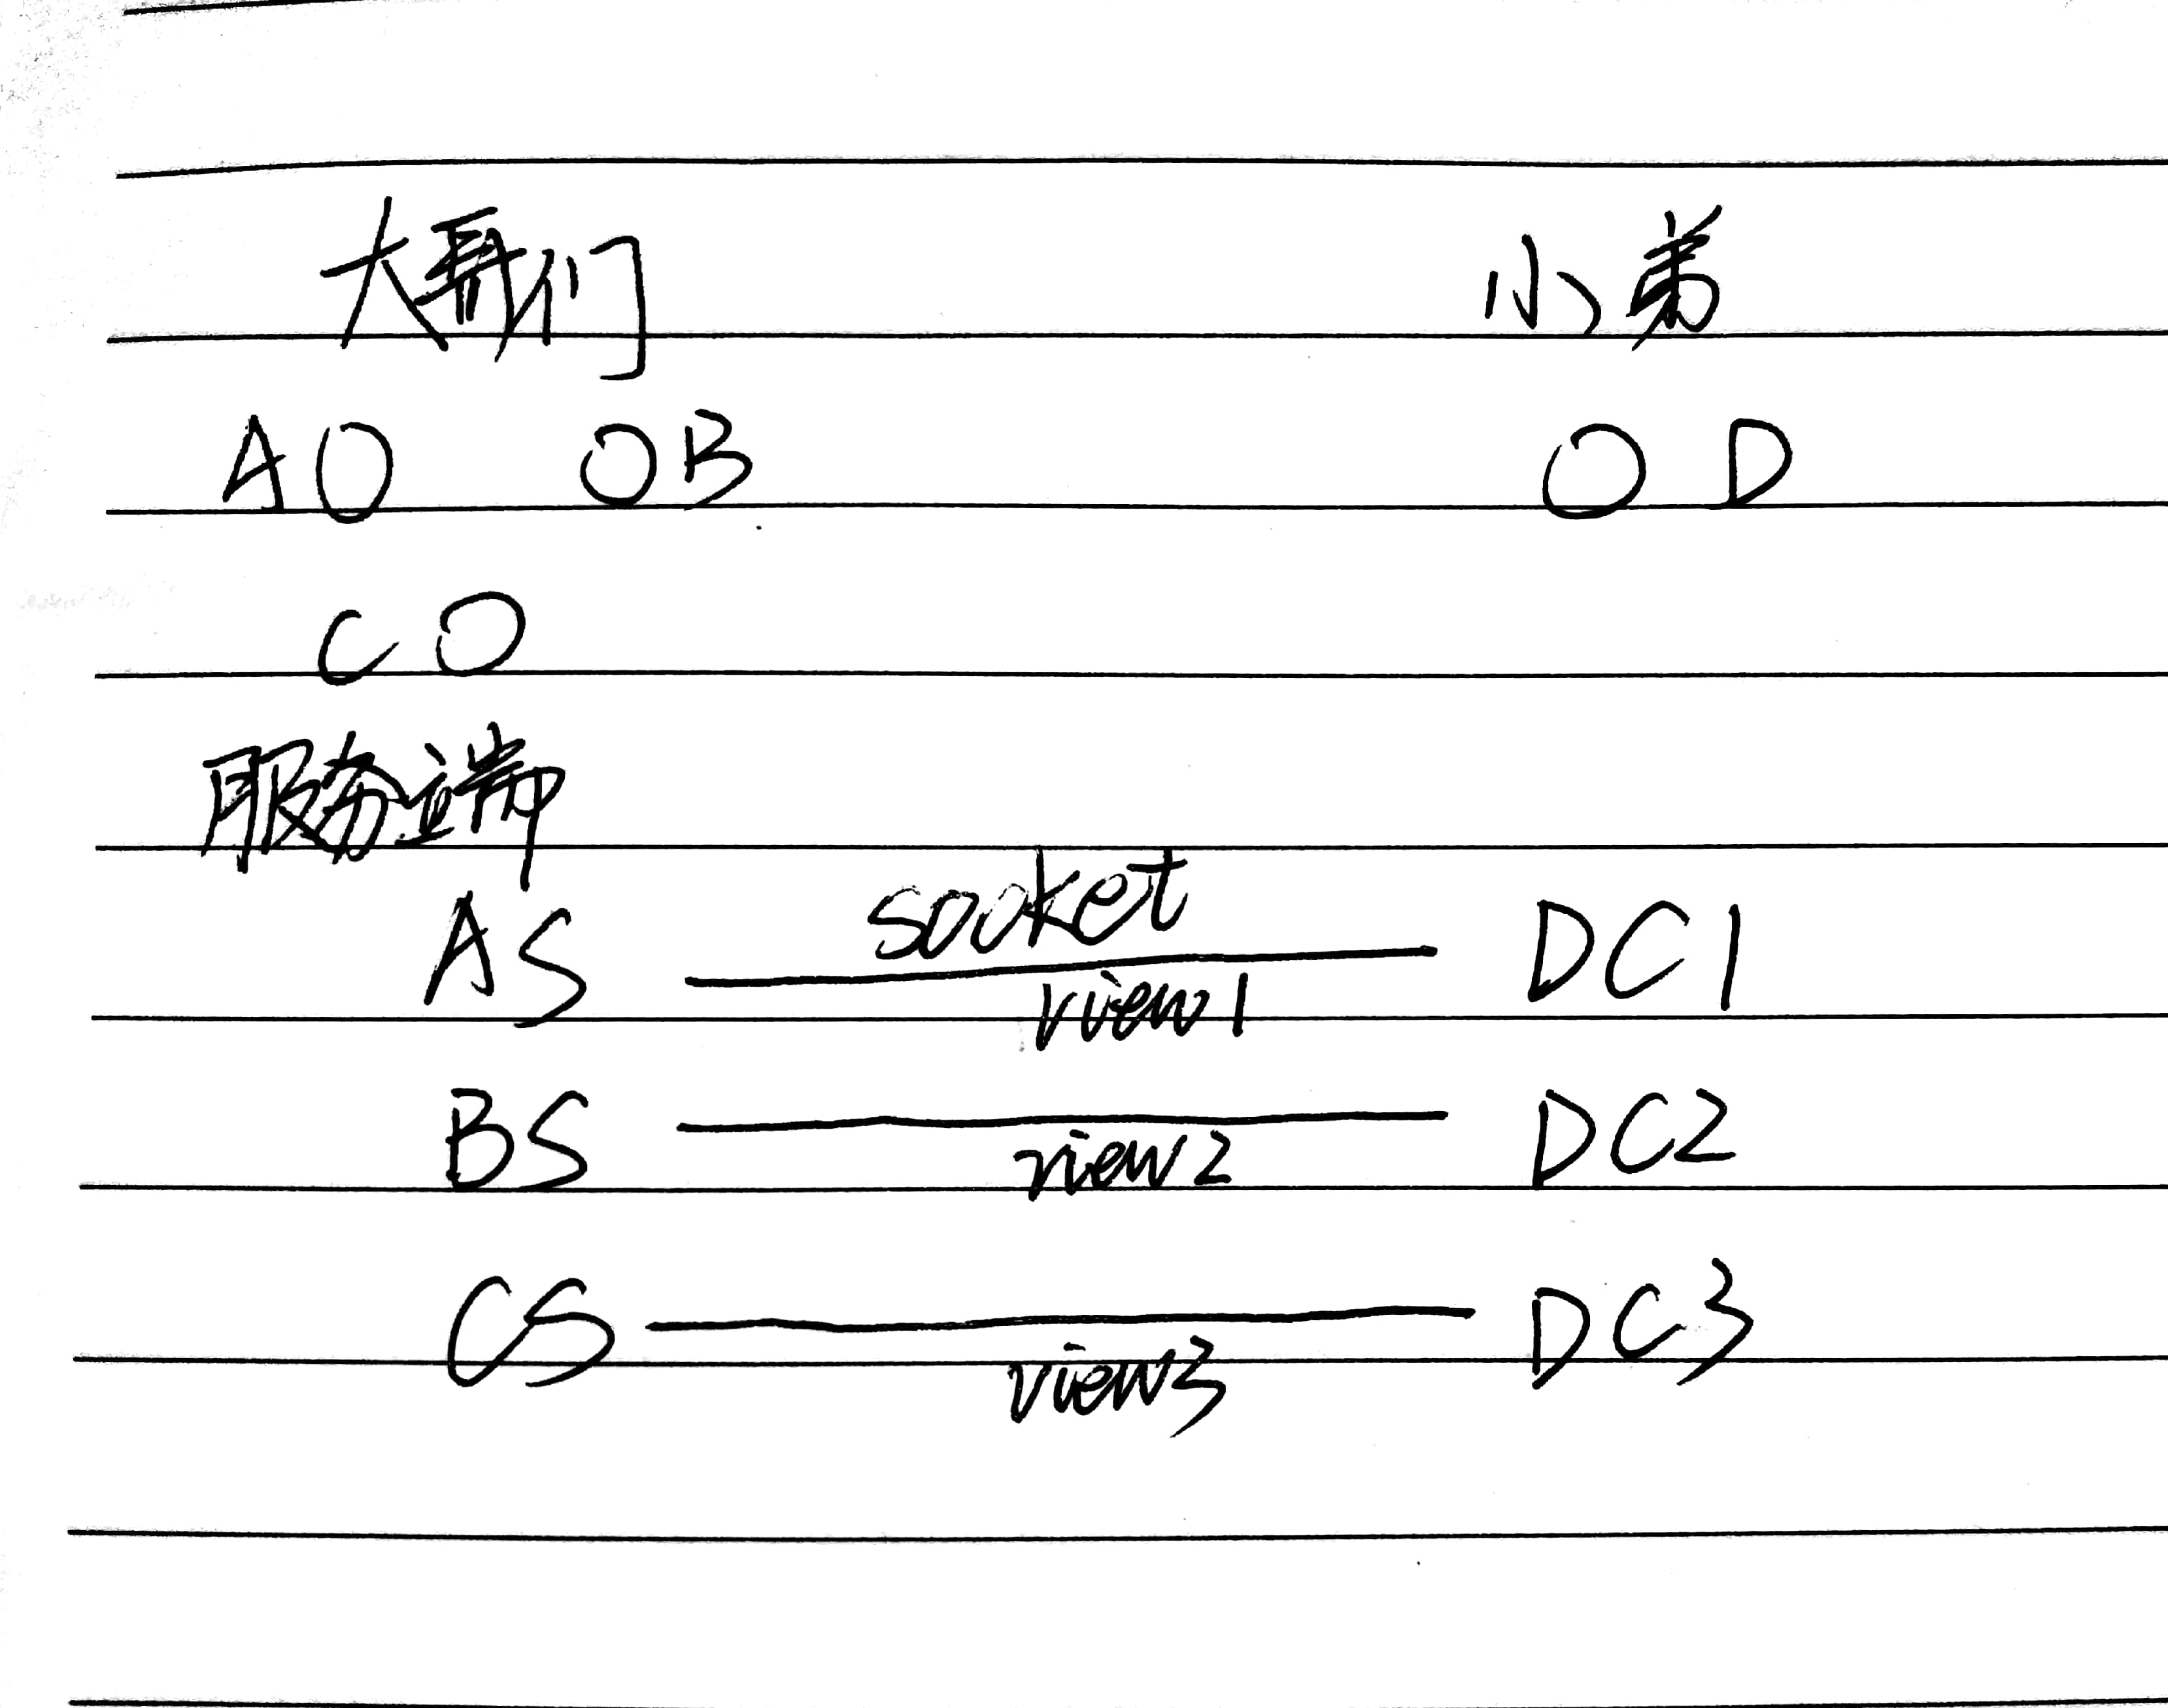 大哥们 小弟
A O O B O D
C O
服务端
socket
AS DC1
view1
BS DC2
view2
CS DC3
view3